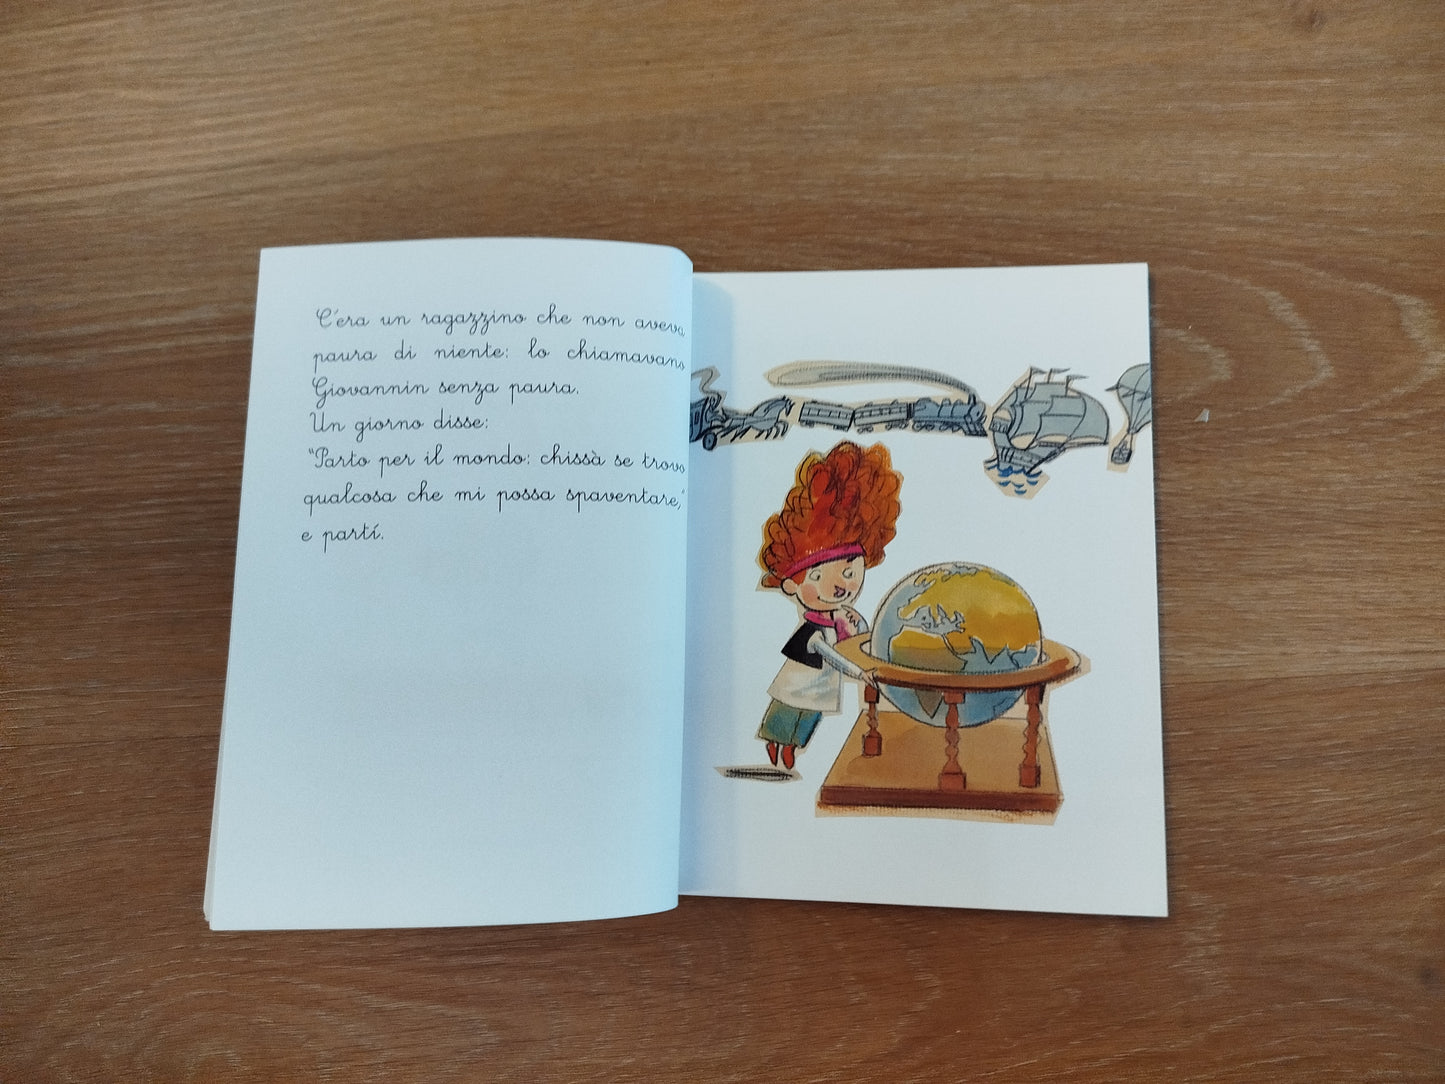 C'era un ragazzino che non aveva
paura di niente: lo chiamavano
Giovannin senza paura.
Un giorno disse:
“Parto per il mondo: chissà se trovo
qualcosa che mi possa spaventare,”
e partí.